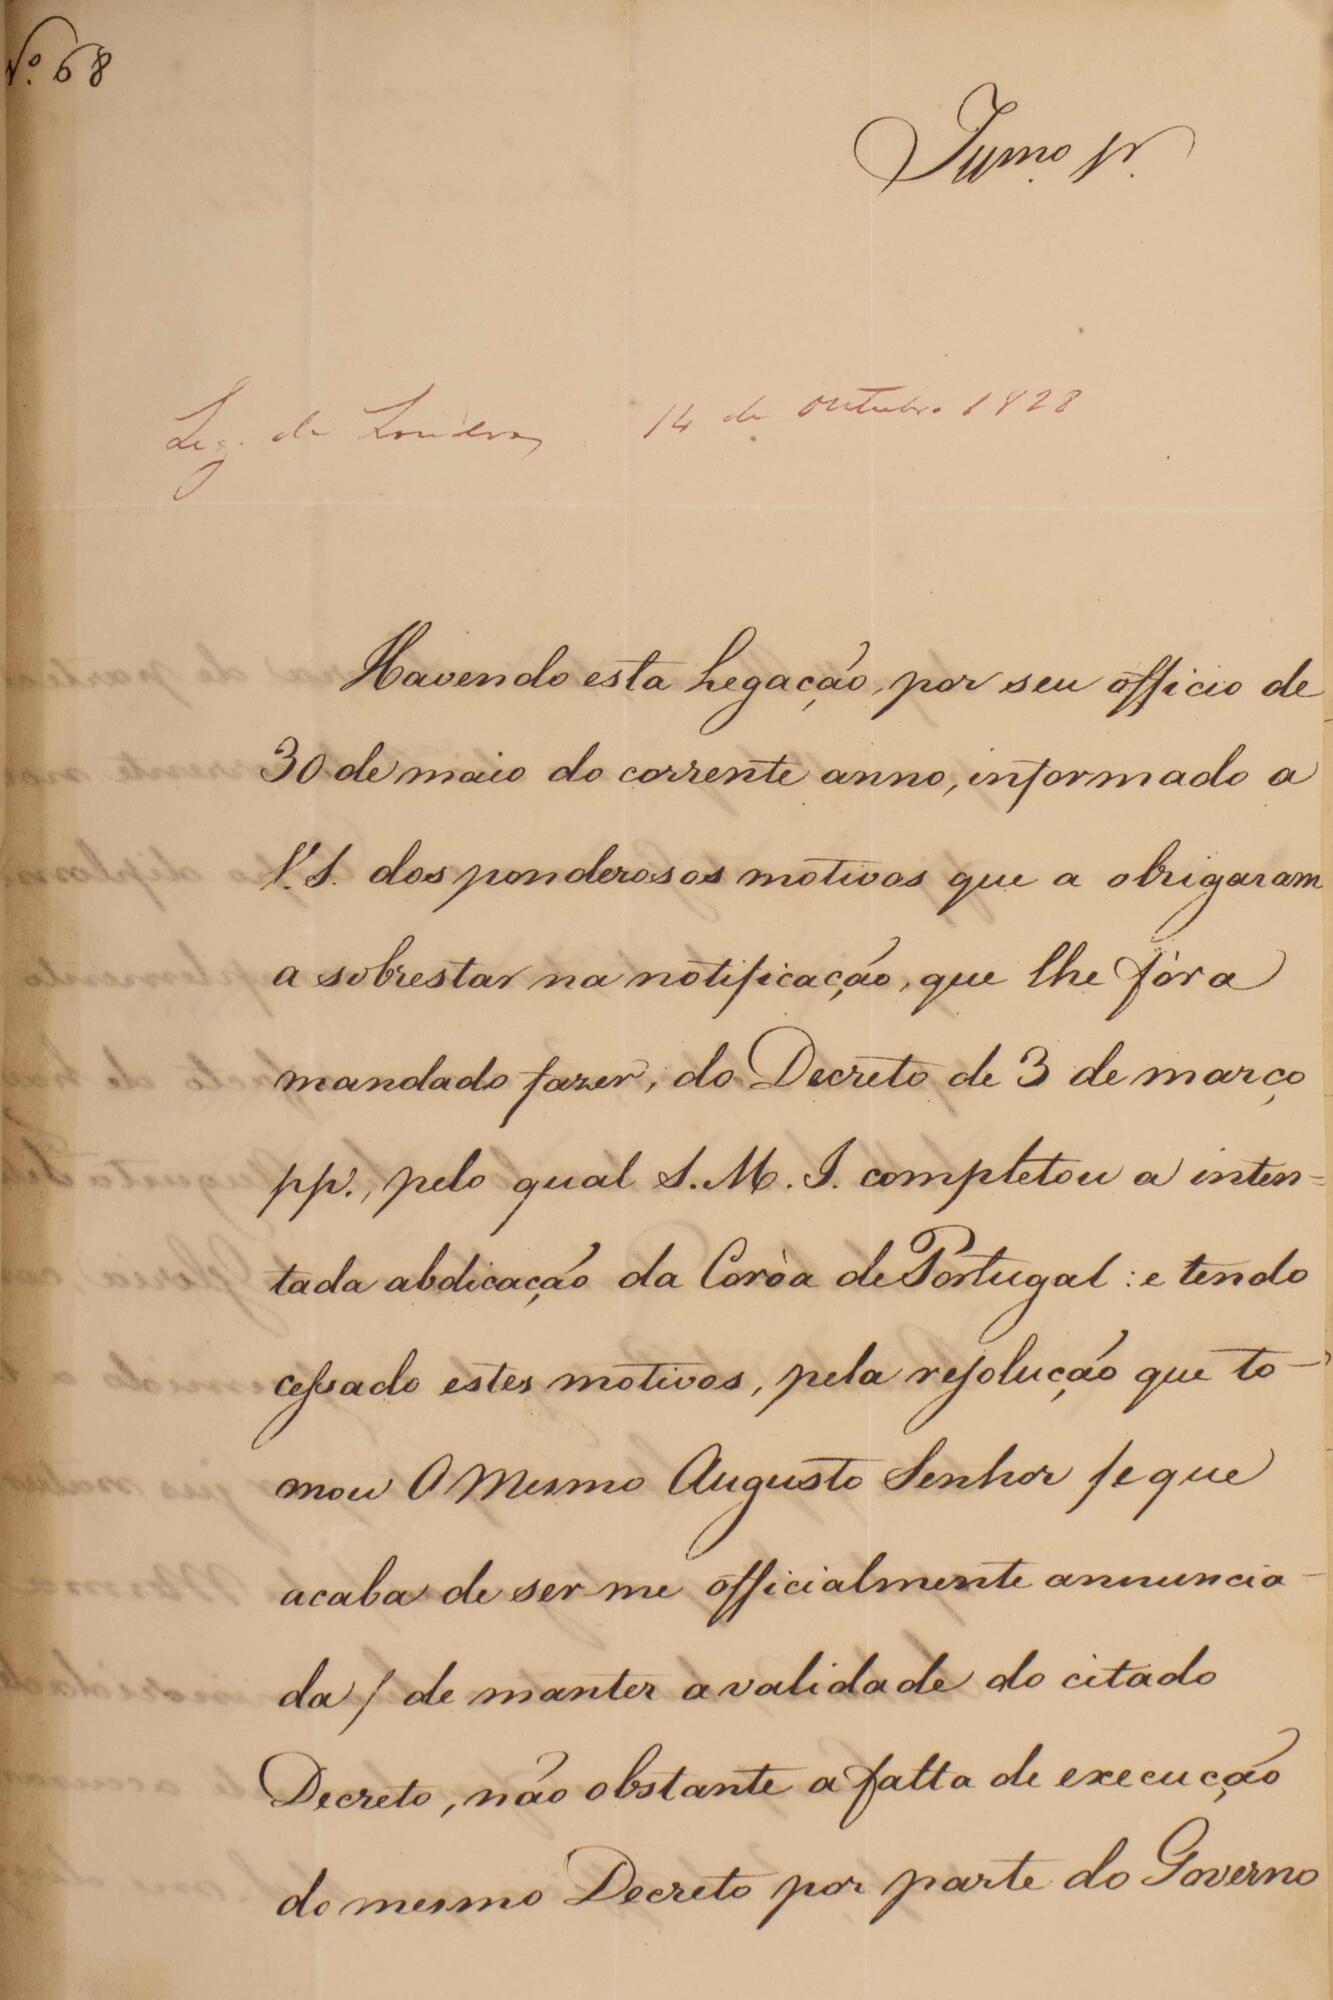 Nº. 68
Illmo. Sr.
Leg. de Londres 14 de Outubro 1828
Havendo esta Legação, por seu officio de
30 de maio do corrente anno, informado a
V.S. dos ponderosos motivos que a obrigaram
a sobrestar na notificação, que lhe fôra
mandado fazer, do Decreto de 3 de março
pp., pelo qual S. M. I. completou a inten=
tada abdicação da Corôa de Portugal : e tendo
cessado estes motivos, pela resolução que to-
mou O Mesmo Augusto Senhor / e que
acaba de ser-me officialmente annuncia-
da / de manter a validade do citado
Decreto, não obstante a falta de execução
do mesmo Decreto por parte do Governo